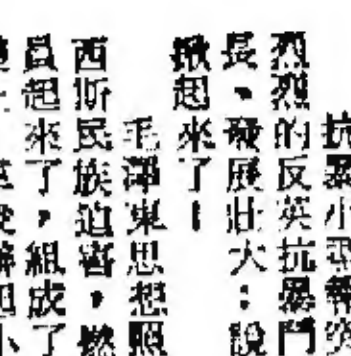 抗暴小
烈烈的反英抗暴鬥
長、發展壯大：
掀起來了！
毛澤東思想照
西斯民族迫害，燃
員起來了，組成了